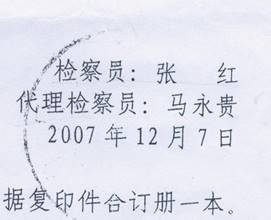 检察员：张　红
代理检察员：马永贵
2007年12月7日
据复印件合订册一本。